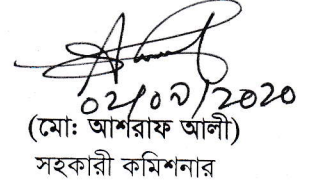 ০২/০৯/2020
(মো: আশরাফ আলী)
সহকারী কমিশনার